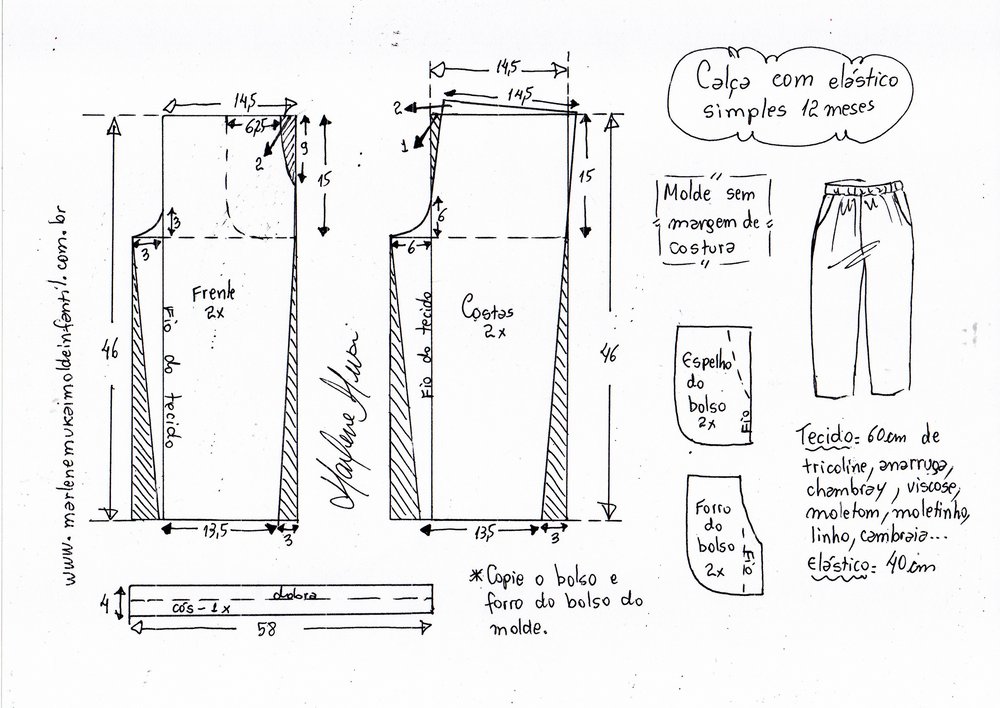 Calça com elástico
simples 12 meses
Molde sem
margem de
costura
www.marlenemukaimoldeinfantil.com.br
14,5
6,25
2
9
15
3
3
46
Frente
2x
Fio do tecido
13,5
3
14,5
14,5
2
1
15
6
6
46
Costas
2x
Fio do tecido
13,5
3
Espelho
do
bolso
2x
Fio
Forro
do
bolso
2x
Fio
Tecido: 60cm de
tricoline, anarruga,
chambray, viscose,
moletom, moletinho,
linho, cambraia...
Elástico: 40cm
4
dobra
cós - 1x
58
*Copie o bolso e
forro do bolso do
molde.